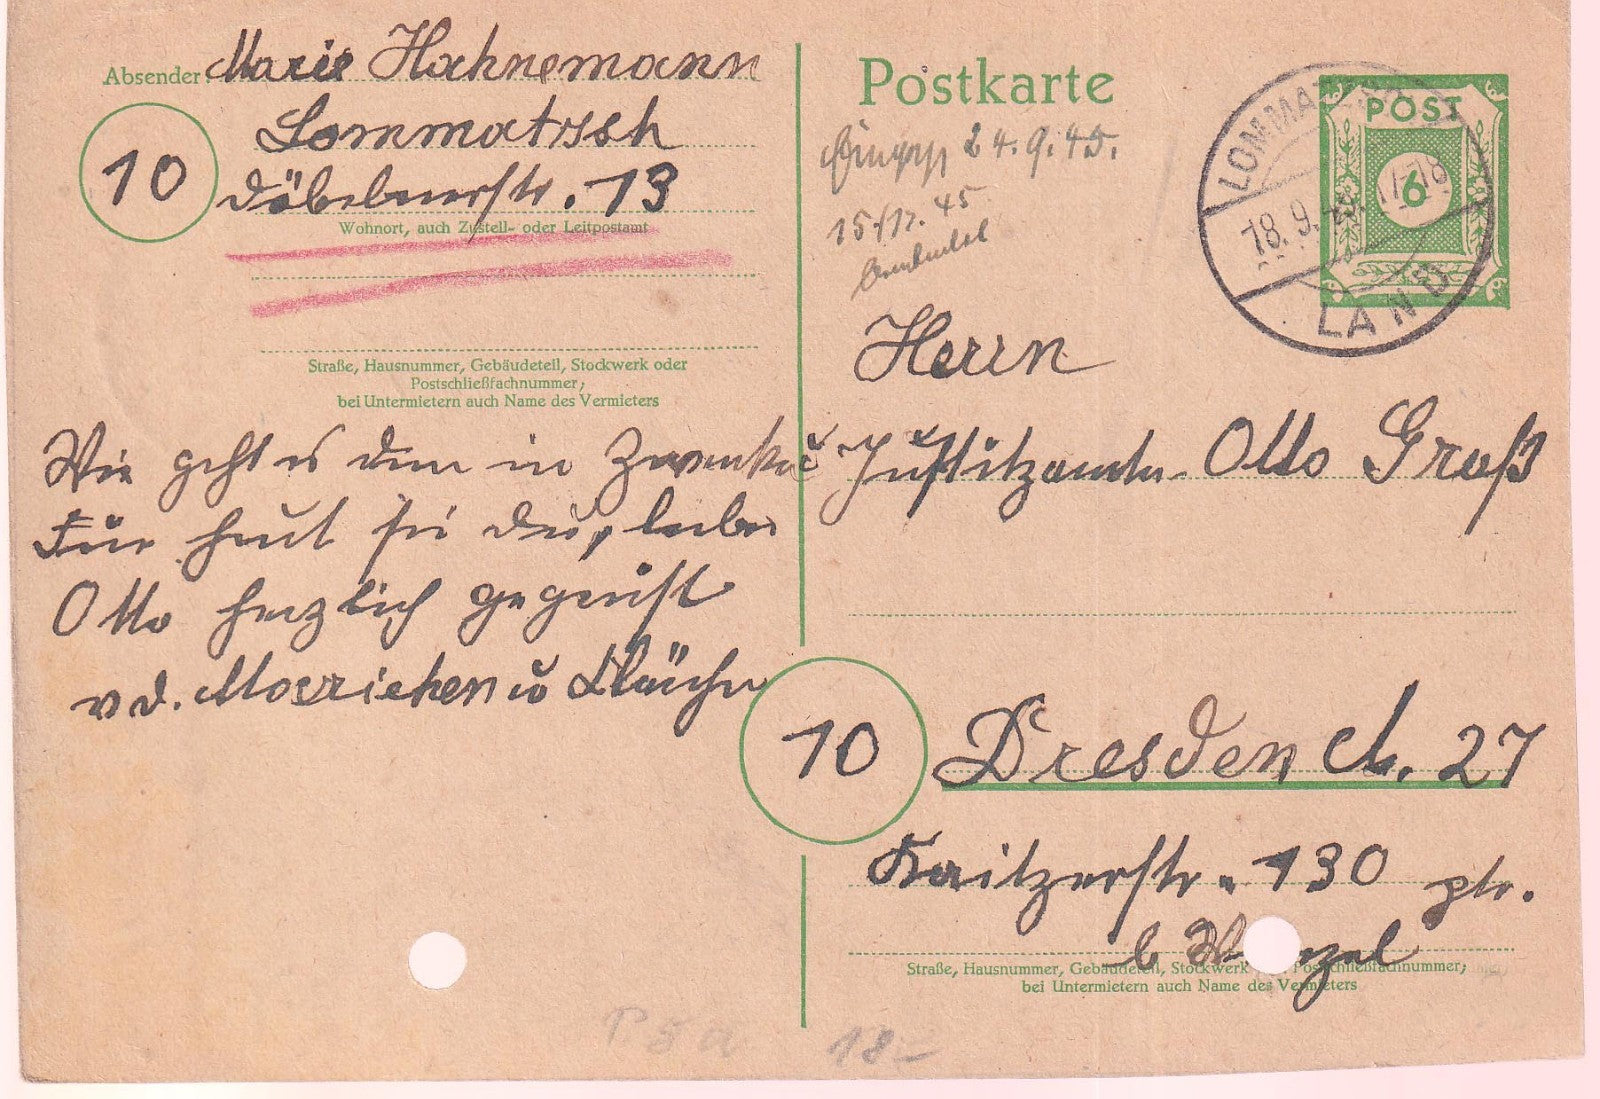 Absender: Marie Hahnemann
Lommatzsch
10
Döbelnerstr. 13
Wohnort, auch Zustell- oder Leitpostamt
Straße, Hausnummer, Gebäudeteil, Stockwerk oder
Postschließfachnummer;
bei Untermietern auch Name des Vermieters
Wie geht es denn in
Für heut sei Du, lieber
Otto herzlich gegrüßt
v d. Mariechen u
Postkarte
24.9.45.
15/12. 45
POST
6
LOMMATZSCH
18.9.45 17-18
LAND
Herrn
Otto Groß
10
Dresden A. 27
Kaitzerstr. 130 ptr.
b
Straße, Hausnummer, Gebäudeteil, Stockwerk Postschließfachnummer;
bei Untermietern auch Name des Vermieters
P 5 a
18-